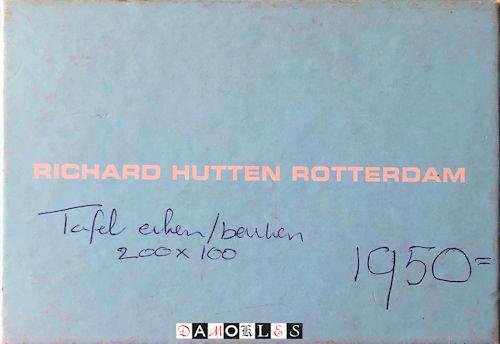 RICHARD HUTTEN ROTTERDAM
Tafel eiken/beuken
200 x 100
1950=
DAMOKLES